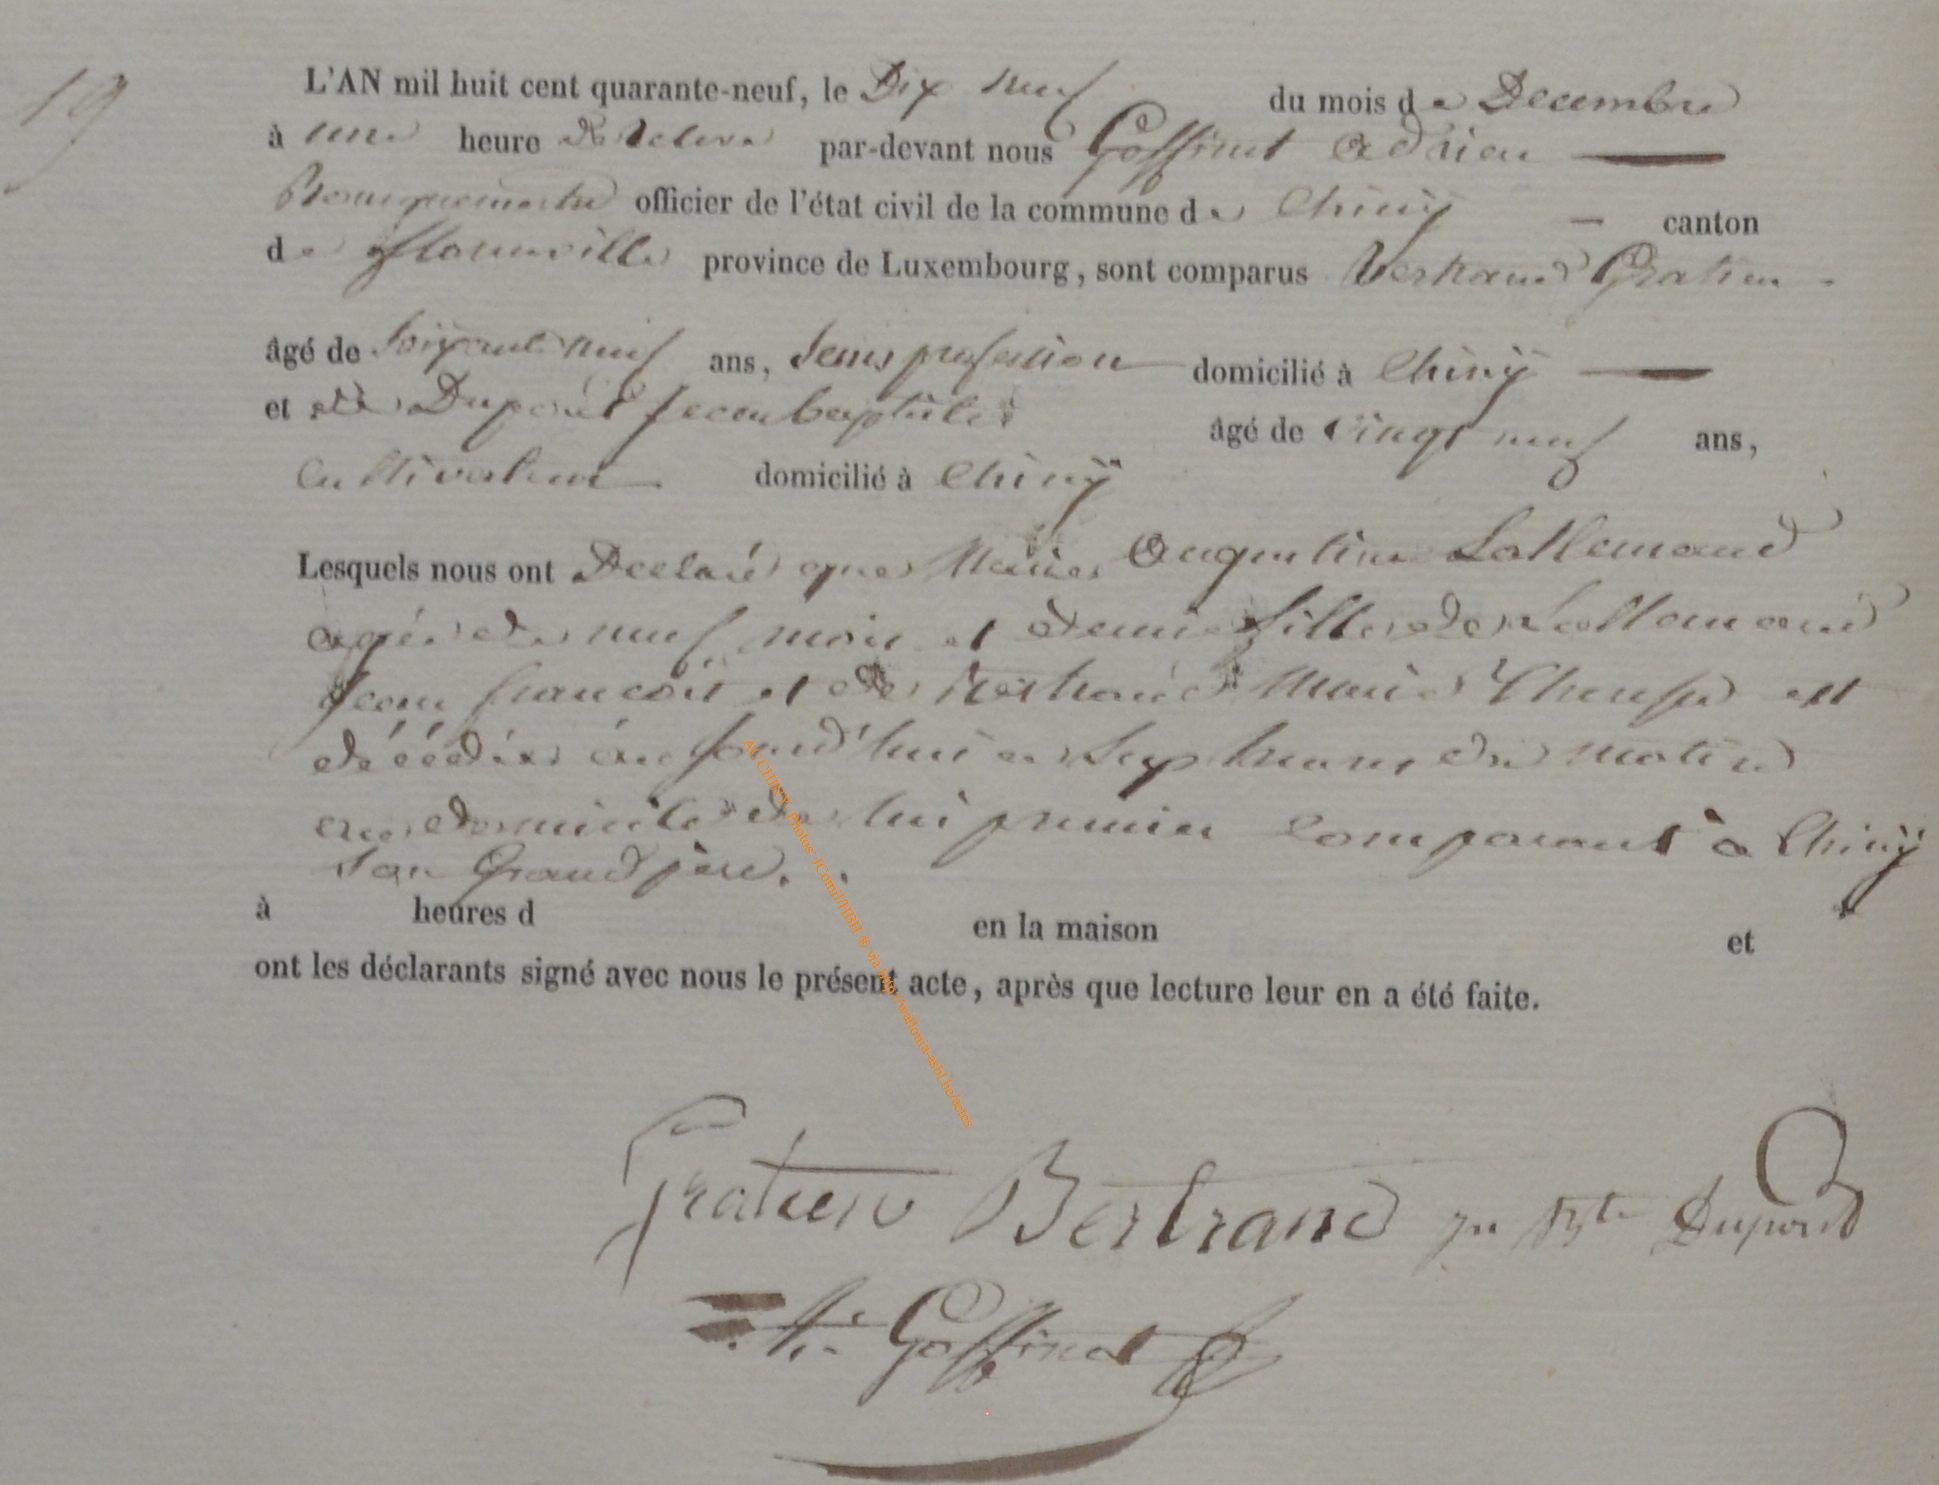 19
L'AN mil huit cent quarante-neuf, le Dix neuf du mois de Decembre
à une heure De releve par-devant nous Goffinet Adrien
Bourguemestre officier de l'état civil de la commune de Chiny — canton
de florenville province de Luxembourg, sont comparus Bertrand Gratien
âgé de Soixant neuf ans, Sans profession domicilié à Chiny
et Dupont jean baptiste âgé de vingt neuf ans,
Cultivateur domicilié à Chiny
Lesquels nous ont Declaré que Marie Augustine Lallemand
agée de neuf mois et demi fille de Lallemand
jean francois et de Bertrand Marie Therese est
décédée aujourd'hui a Sept heures du matin
au domicile de lui premier Comparant à Chiny
son Grand père.
à heures d en la maison et
ont les déclarants signé avec nous le présent acte, après que lecture leur en a été faite.
Gratien Bertrand jn Bte Dupont
Goffinet